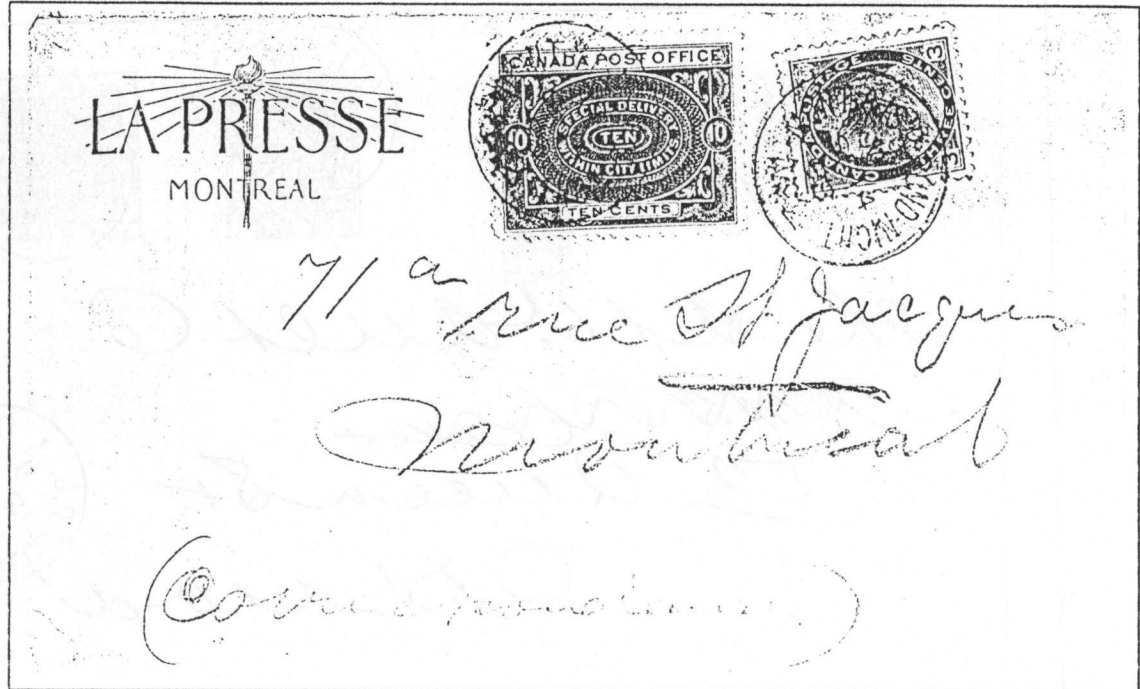 LA PRESSE
MONTREAL
CANADA POST OFFICE
SPECIAL DELIVERY
10 TEN 10
WITHIN CITY LIMITS
TEN CENTS
CANADA POSTAGE
3 CENTS 3
71a Rue St. Jacques
Montreal
(Correspondance)